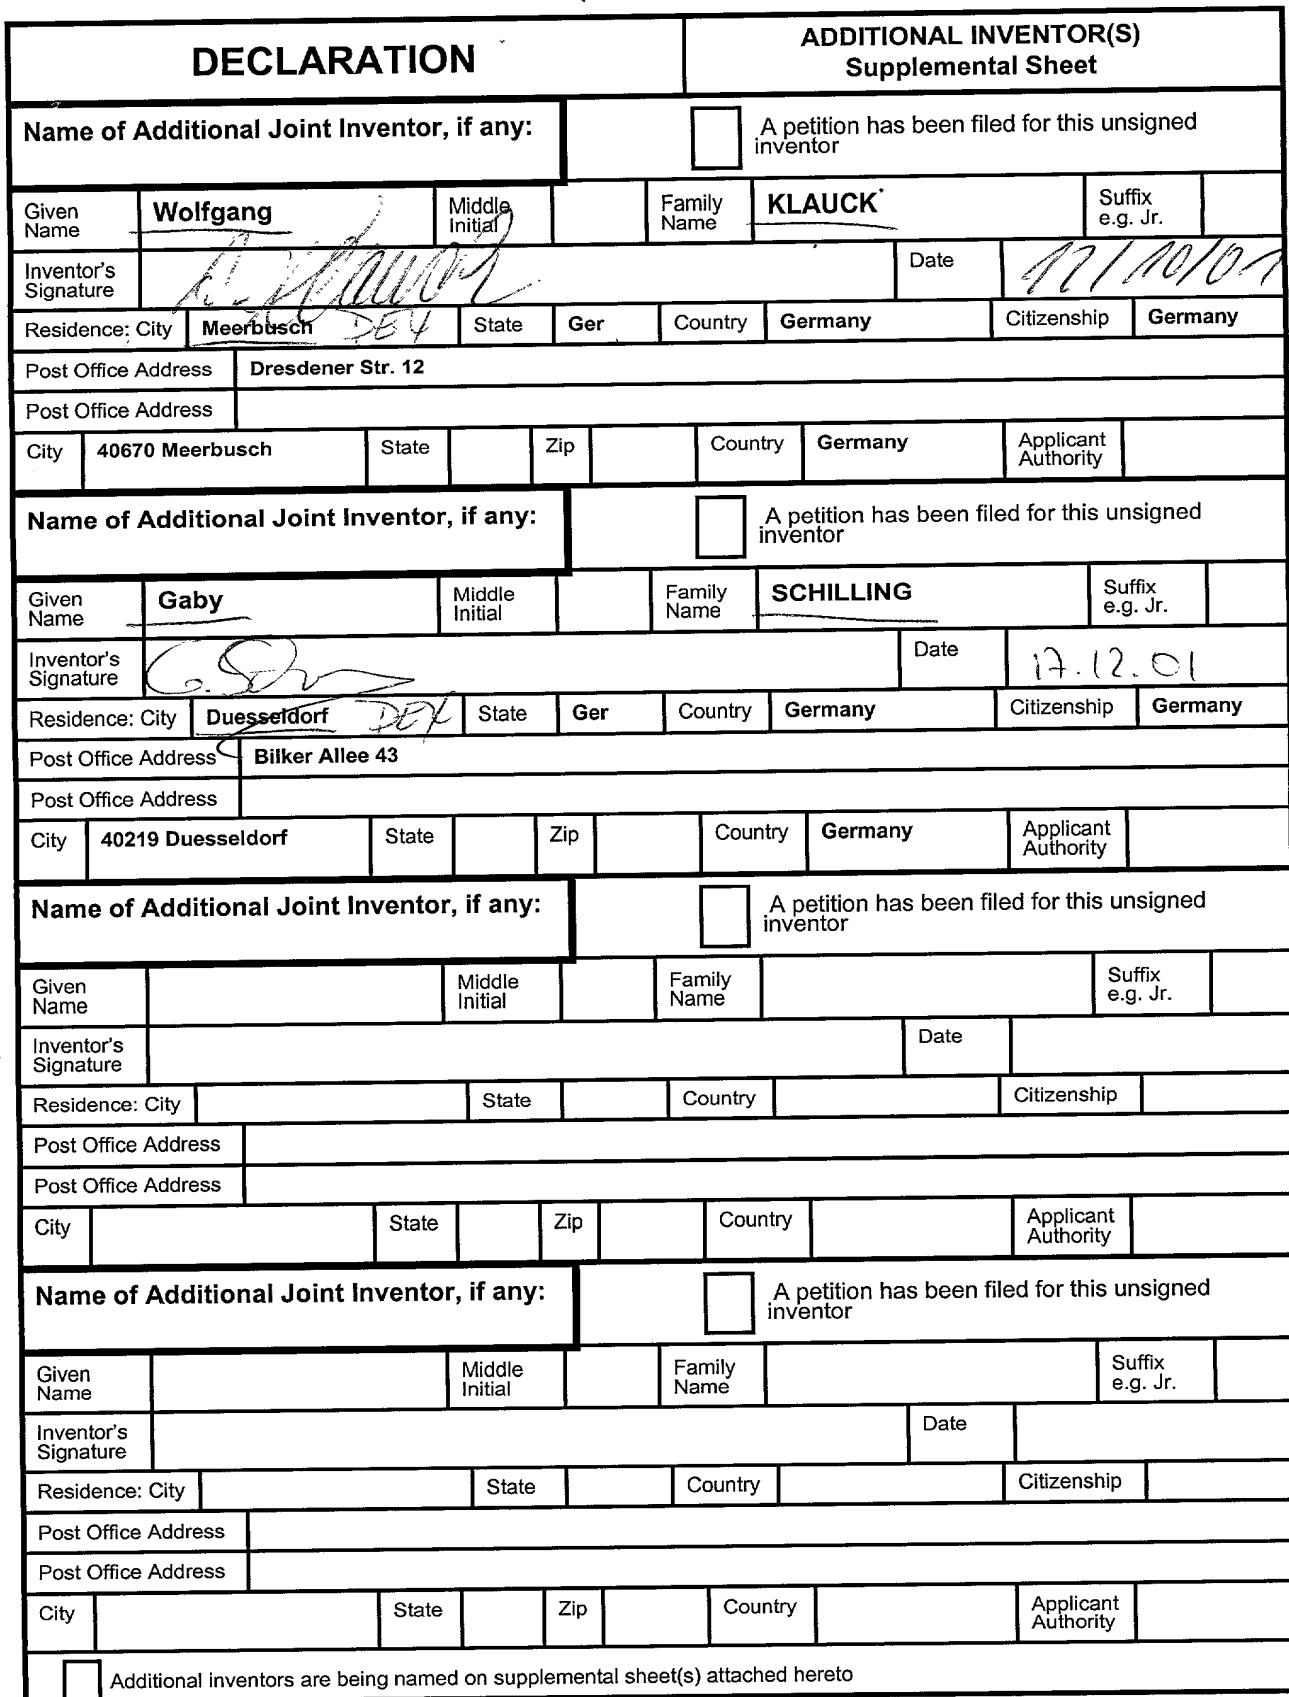 DECLARATION
ADDITIONAL INVENTOR(S)
Supplemental Sheet
Name of Additional Joint Inventor, if any:
A petition has been filed for this unsigned
inventor
Given
Name
Wolfgang
Middle
Initial
Family
Name
KLAUCK
Suffix
e.g. Jr.
Inventor's
Signature
Date
Residence: City
Meerbusch
DEX
State
Ger
Country
Germany
Citizenship
Germany
Post Office Address
Dresdener Str. 12
Post Office Address
City
40670 Meerbusch
State
Zip
Country
Germany
Applicant
Authority
Name of Additional Joint Inventor, if any:
A petition has been filed for this unsigned
inventor
Given
Name
Gaby
Middle
Initial
Family
Name
SCHILLING
Suffix
e.g. Jr.
Inventor's
Signature
Date
17.12.01
Residence: City
Duesseldorf
DEX
State
Ger
Country
Germany
Citizenship
Germany
Post Office Address
Bilker Allee 43
Post Office Address
City
40219 Duesseldorf
State
Zip
Country
Germany
Applicant
Authority
Name of Additional Joint Inventor, if any:
A petition has been filed for this unsigned
inventor
Given
Name
Middle
Initial
Family
Name
Suffix
e.g. Jr.
Inventor's
Signature
Date
Residence: City
State
Country
Citizenship
Post Office Address
Post Office Address
City
State
Zip
Country
Applicant
Authority
Name of Additional Joint Inventor, if any:
A petition has been filed for this unsigned
inventor
Given
Name
Middle
Initial
Family
Name
Suffix
e.g. Jr.
Inventor's
Signature
Date
Residence: City
State
Country
Citizenship
Post Office Address
Post Office Address
City
State
Zip
Country
Applicant
Authority
Additional inventors are being named on supplemental sheet(s) attached hereto